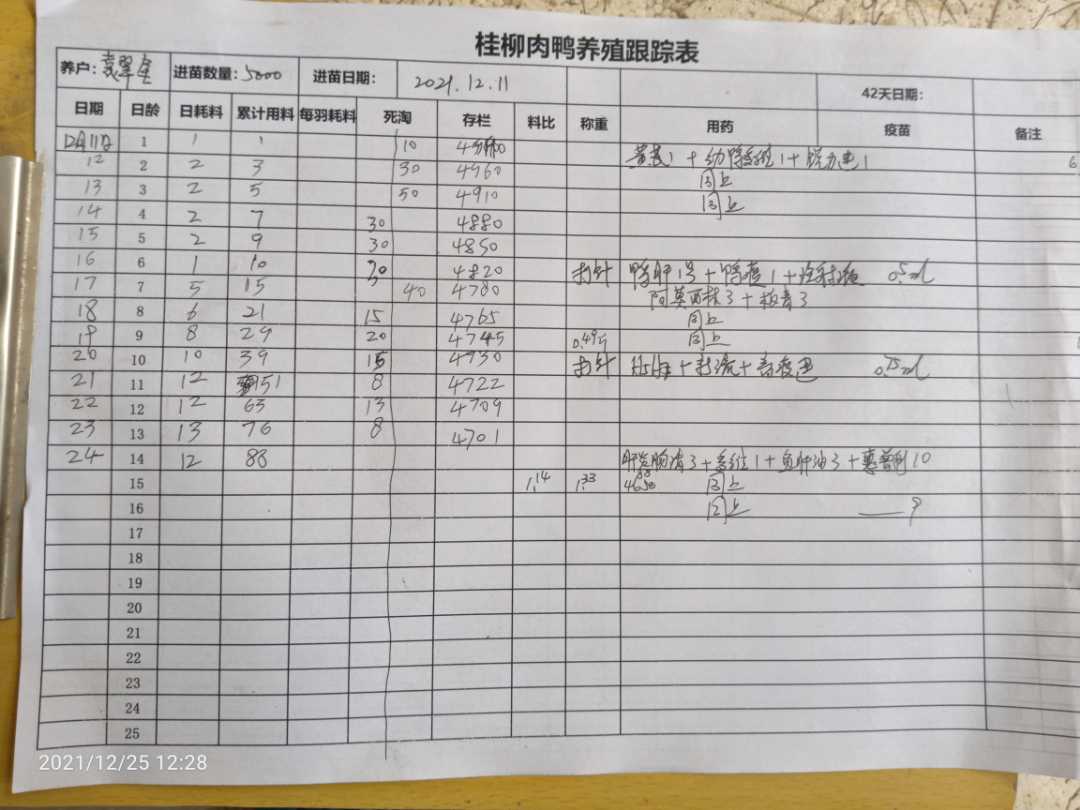 桂柳肉鸭养殖跟踪表
养户: 进苗数量:5000 进苗日期: 2021.12.11 42天日期:
日期 日龄 日耗料 累计用料 每羽耗料 死淘 存栏 料比 称重 用药 疫苗 备注
1 1 1 10
12 2 2 3 30 4960 同上
13 3 2 5 50 4910 同上
14 4 2 7 30 4880
15 5 2 9 30 4850
16 6 1 10 30 4820 打针 鸭肝1号+鸭瘟1+ 0.5ml
17 7 5 15 40 4780 阿莫西林3+ 3
18 8 6 21 15 4765 同上
19 9 8 29 20 4745 0.49斤 同上
20 10 10 39 15 4730 打针 0.75ml
21 11 12 51 8 4722
22 12 12 63 13 4709
23 13 13 76 8 4701
24 14 12 88 3+多维1+鱼肝油3+ 10
15 1.14 1.33 同上
16 同上
17
18
19
20
21
22
23
24
25
2021/12/25 12:28